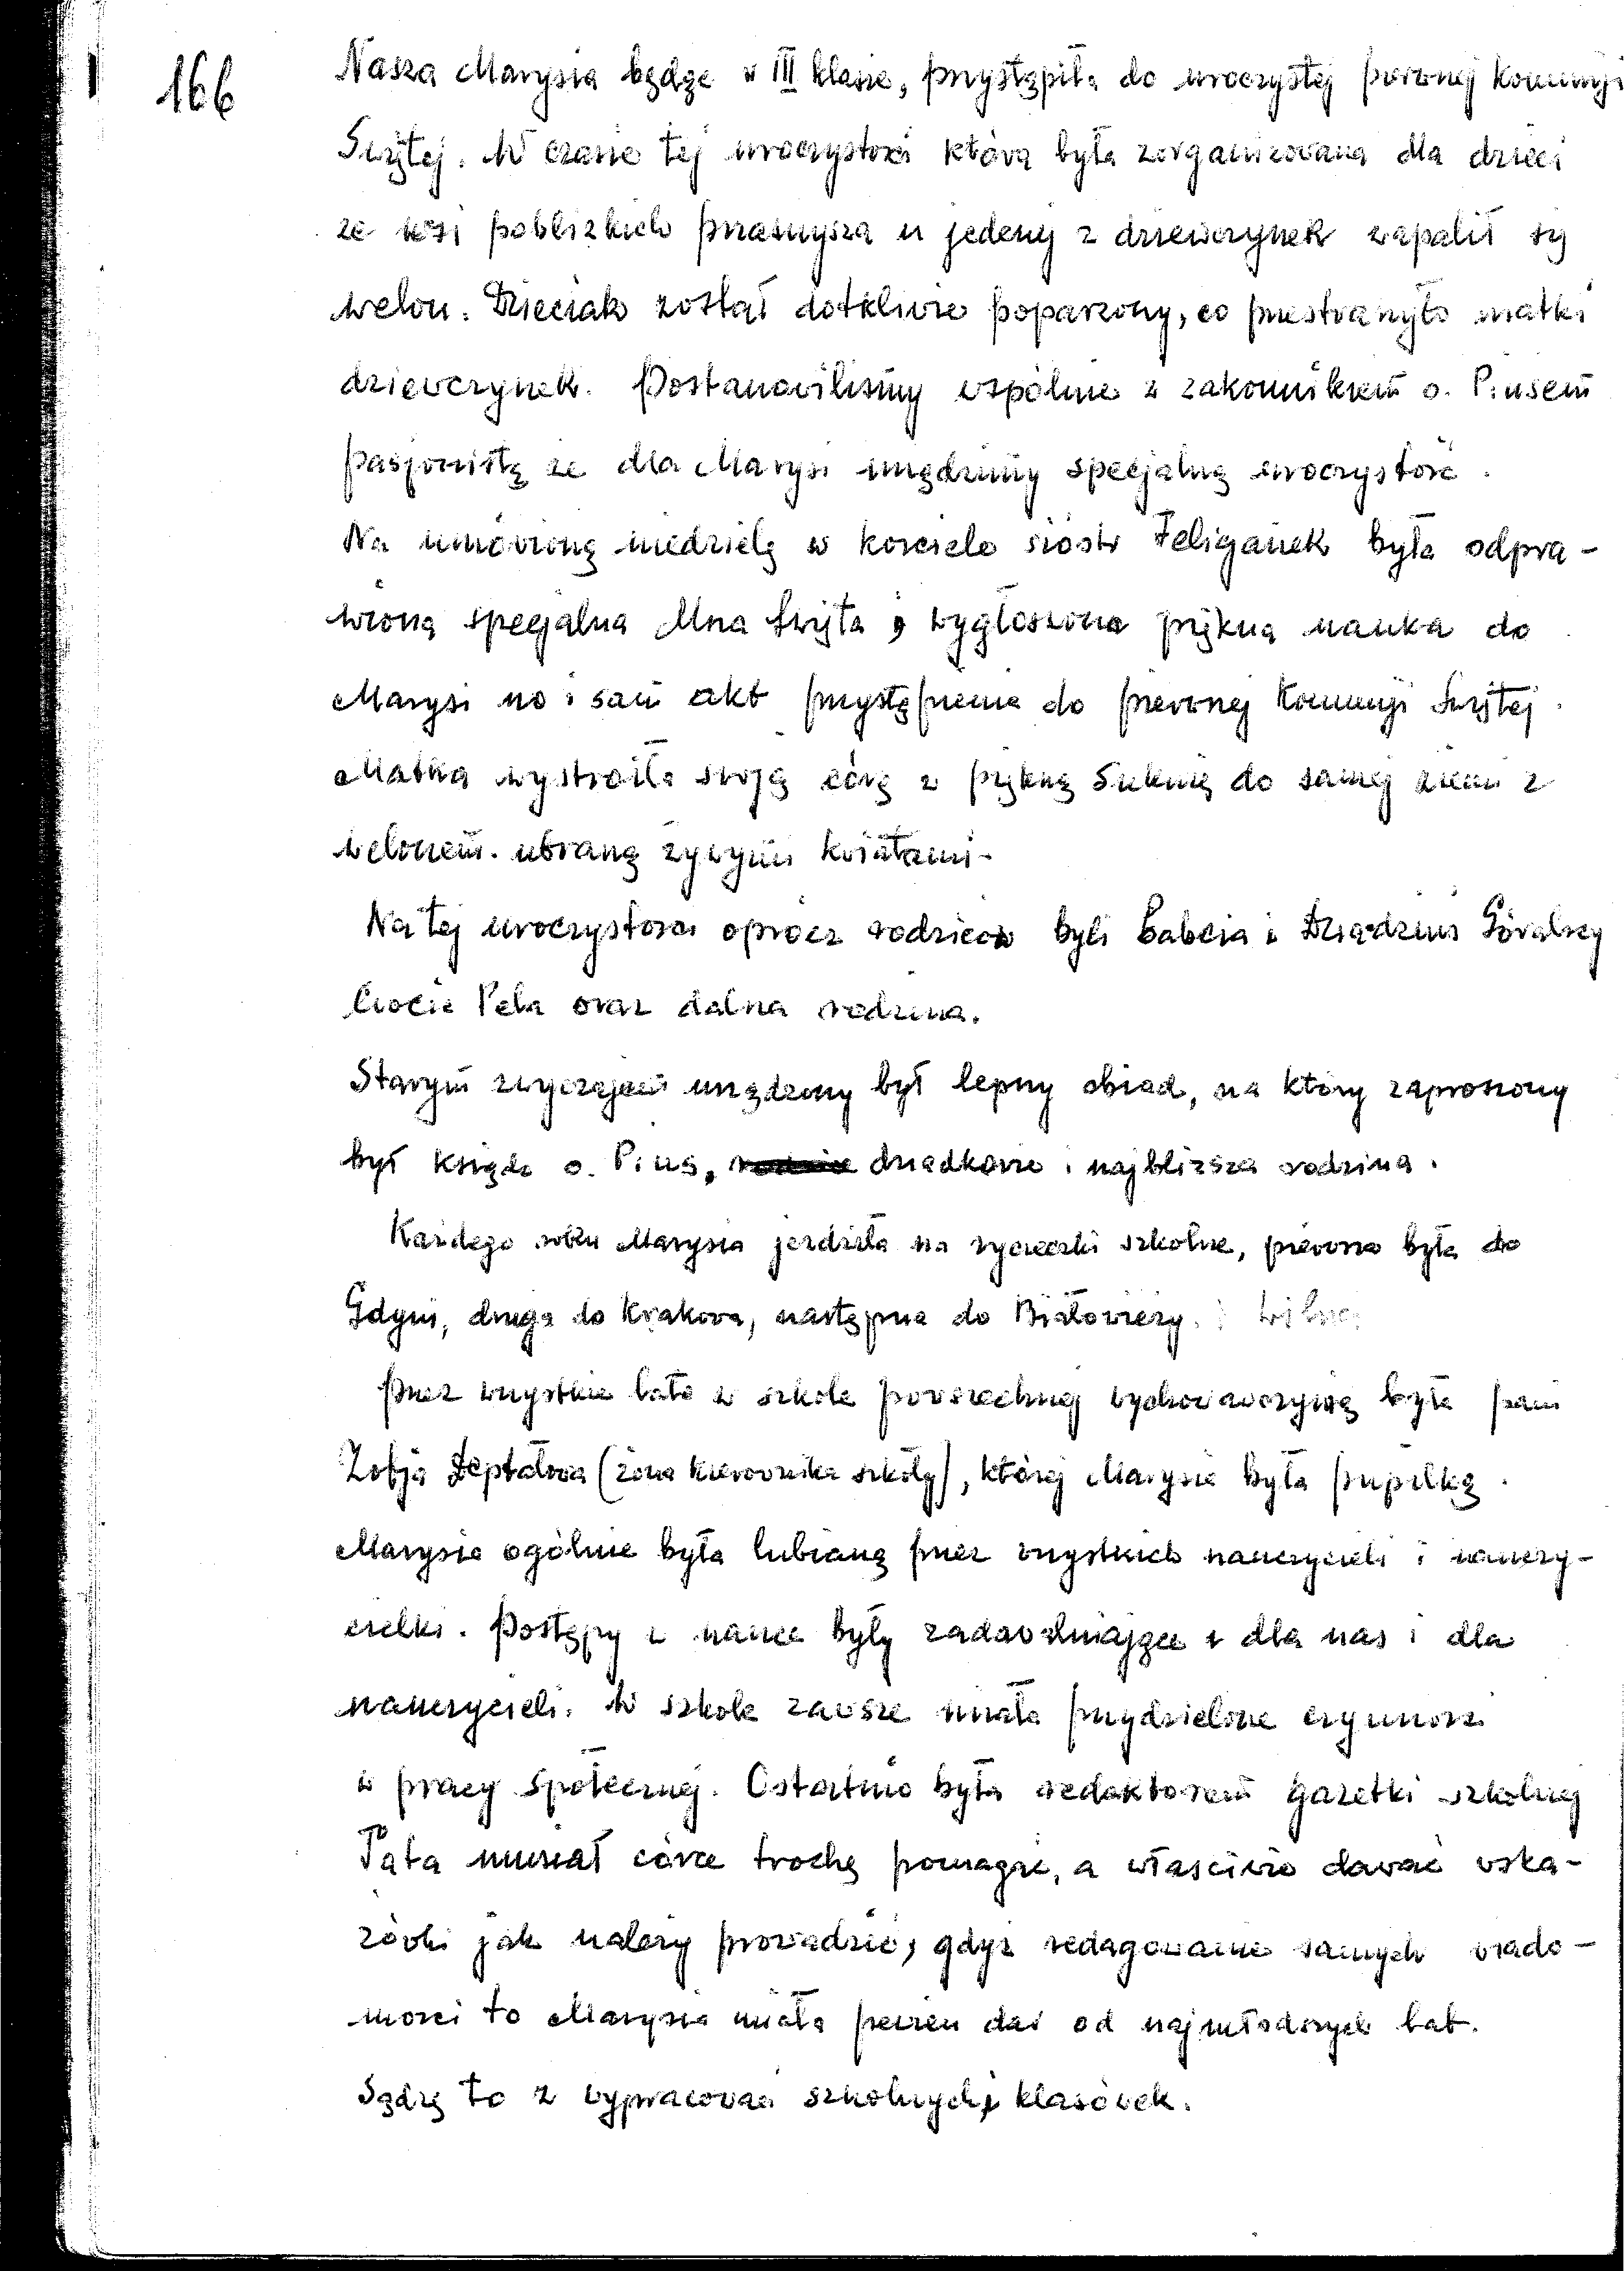 166
Nasza Marysia będąc w III klasie, przystąpiła do uroczystej pierwszej Komunji
Świętej. W czasie tej uroczystości która była zorganizowana dla dzieci
ze wsi pobliskich Przasnysza u jednej z dziewczynek zapalił się
welon. Dzieciak został dotkliwie poparzony, co przestraszyło matki
dziewczynek. Postanowiliśmy wspólnie z zakonnikiem o. Piusem
pasjonistą że dla Marysi urządzimy specjalną uroczystość.
Na umówioną niedzielę w kościele sióstr Felicjanek była odpra-
wiona specjalna Msza Święta, wygłoszona piękna nauka do
Marysi no i sam akt przystąpienia do pierwszej Komunji Świętej.
Matka wystroiła swoją córę w piękną suknię do samej ziemi z
welonem. ubraną żywymi kwiatami.
Na tej uroczystości oprócz rodziców byli babcia i Dziadziuś Góralscy
Ciocia Pela oraz dalsza rodzina.
Starym zwyczajem urządzony był lepszy obiad, na który zaproszony
był ksiądz o. Pius, dziadkowie i najbliższa rodzina.
Każdego roku Marysia jeździła na wycieczki szkolne, pierwsza była do
Gdyni, druga do Krakowa, następna do Białowieży. i Wilna.
Przez wszystkie lata w szkole powszechnej wychowawczynią była pani
Zofja Deptałowa (żona kierownika szkoły), której Marysia była pupilką.
Marysia ogólnie była lubianą przez wszystkich nauczycieli i nauczy-
cielki. Postępy w nauce były zadawalniające i dla nas i dla
nauczycieli. W szkole zawsze miała przydzielone czynności
w pracy społecznej. Ostatnio była redaktorem gazetki szkolnej
Tata musiał córce trochę pomagać, a właściwie dawać wska-
zówki jak należy prowadzić, gdyż redagowanie samych wiado-
mości to Marysia miała pewien dar od najmłodszych lat.
Sądzę to z wypracowań szkolnych, klasówek.